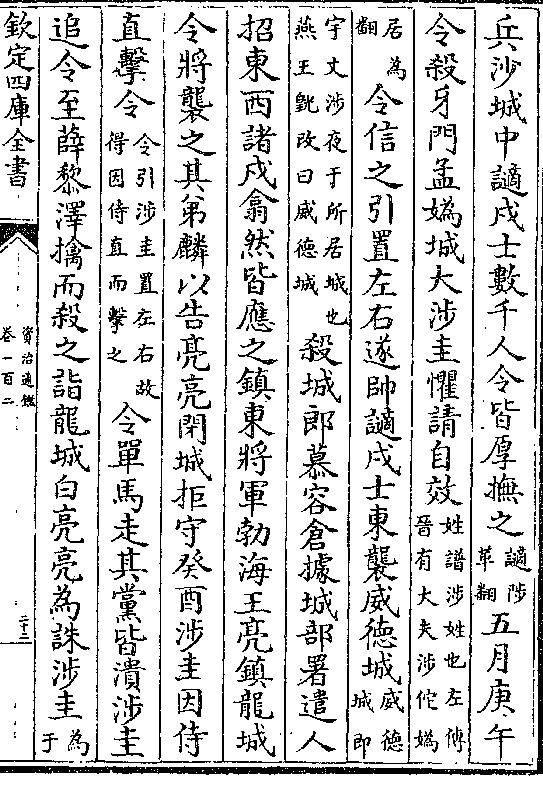 兵沙城中讁戍士數千人令皆厚撫之讁陟革翻五月庚午
令殺牙門孟媯城大涉圭懼請自效姓譜涉姓也左傳晉有大夫涉佗媯
居為翻令信之引置左右遂帥讁戍士東襲威德城威德城即
宇文涉夜于所居城也燕王皝改曰威德城殺城郎慕容倉據城部署遣人
招東西諸戍翕然皆應之鎮東將軍勃海王亮鎮龍城
令將襲之其弟麟以告亮亮閉城拒守癸酉涉圭因侍
直擊令令引涉圭置左右故得因侍直而擊之令單馬走其黨皆潰涉圭
追令至薛黎澤擒而殺之詣龍城白亮亮為誅涉圭為于
欽定四庫全書
資治通鑑
卷一百二
二十三